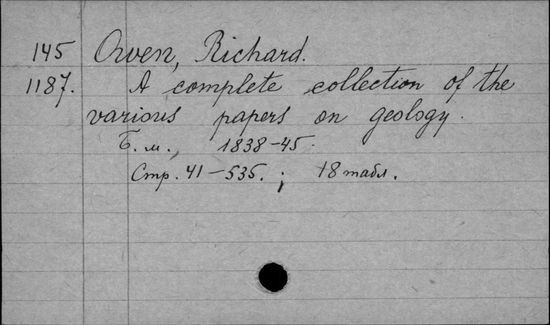 145 Owen, Richard.
1187. A complete collection of the
various papers on geology.
Б. м., 1838-45.
Стр. 41-535. ; 18 табл.